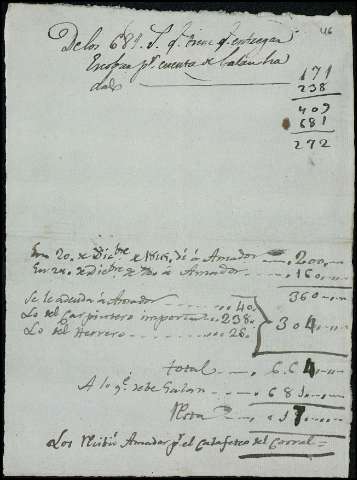 116
De los 681. S. q.e tiene q.e entregar
por cuenta de
171
238
409
681
272
En 20. de Dicbre de di á Amador 200
En de Dicbre de á Amador 160
360
Se le adeuda á Amador 40.
Lo del Carpintero importa 238.
Lo del Herrero 26.
304
total 664
A lo q.e debe Galan 681
Resta 17
Los Recivió Amador p.r el Catafalco del Corral